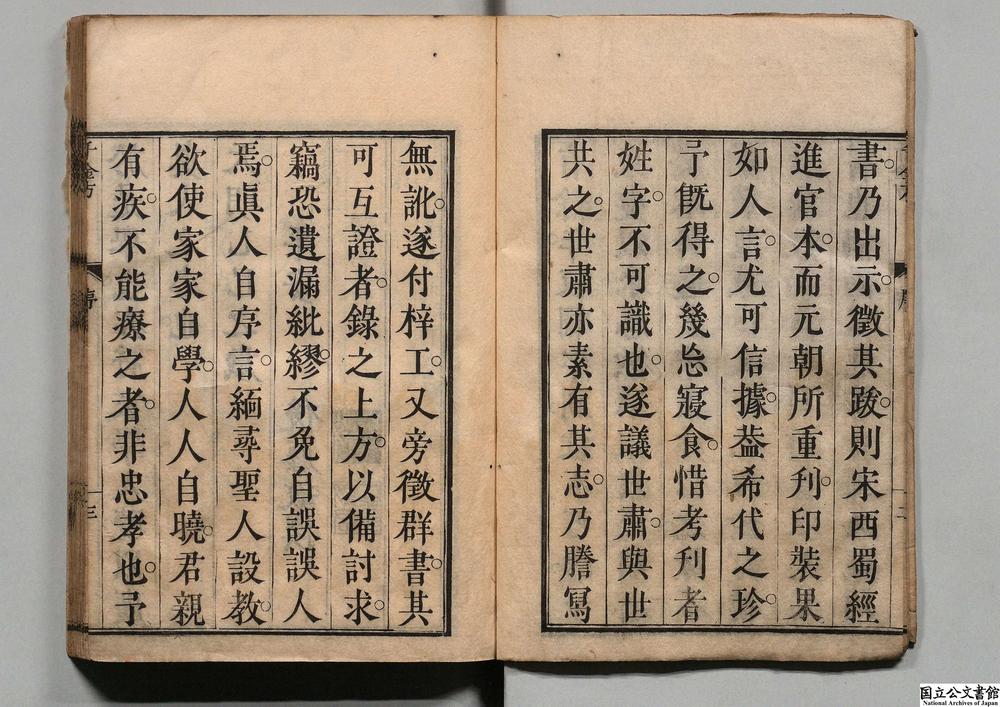 書乃出示徵其跋則宋西蜀經
進官本而元朝所重刋印裝果
如人言尤可信據葢希代之珍
予旣得之幾忘寢食惜考刋者
姓字不可識也遂議世肅與世
共之世肅亦素有其志乃謄冩
無訛遂付梓工又旁徵群書其
可互證者錄之上方以備討求
竊恐遺漏紕繆不免自誤誤人
焉眞人自序言緬尋聖人設教
欲使家家自學人人自曉君親
有疾不能療之者非忠孝也予
千金方
序
二
三
国立公文書館
National Archives of Japan